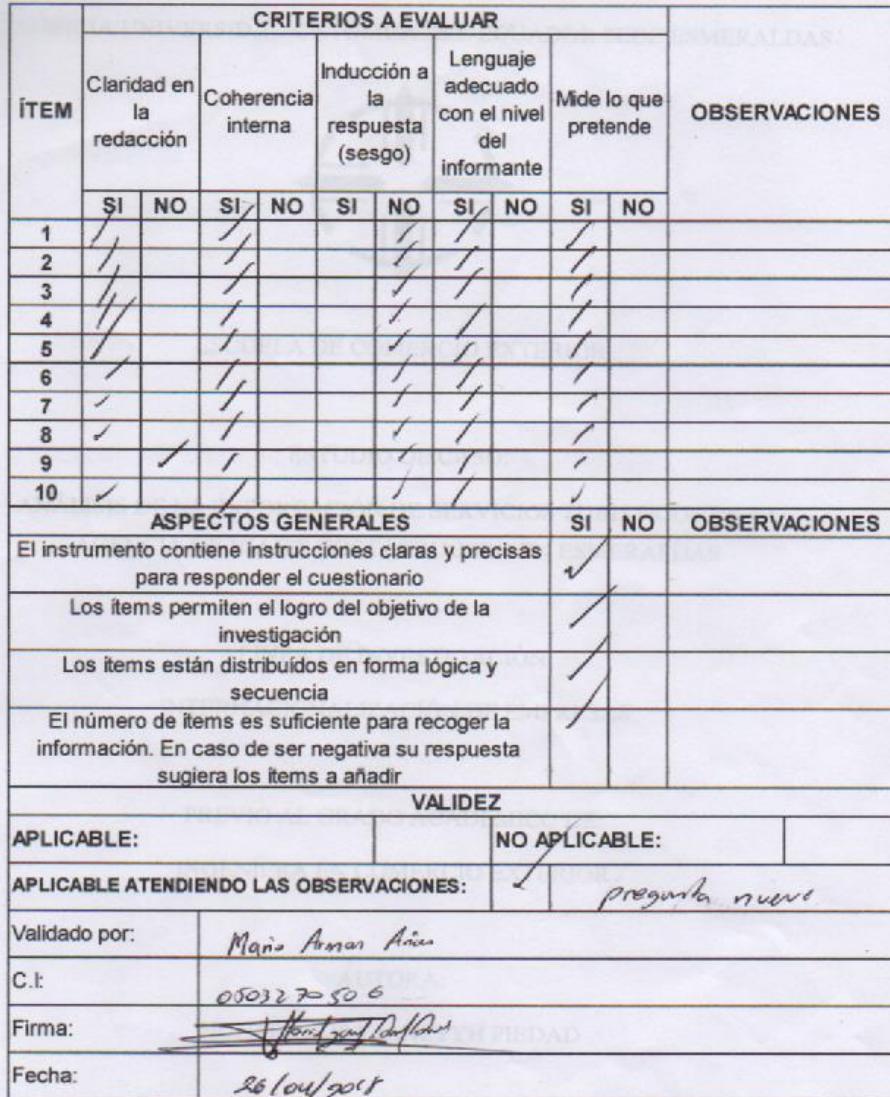 CRITERIOS A EVALUAR
ÍTEM
Claridad en
la
redacción
Coherencia
interna
Inducción a
la
respuesta
(sesgo)
Lenguaje
adecuado
con el nivel
del
informante
Mide lo que
pretende
OBSERVACIONES
SI NO SI NO SI NO SI NO SI NO
1
2
3
4
5
6
7
8
9
10
ASPECTOS GENERALES SI NO OBSERVACIONES
El instrumento contiene instrucciones claras y precisas
para responder el cuestionario
Los ítems permiten el logro del objetivo de la
investigación
Los ítems están distribuídos en forma lógica y
secuencia
El número de ítems es suficiente para recoger la
información. En caso de ser negativa su respuesta
sugiera los ítems a añadir
VALIDEZ
APLICABLE: NO APLICABLE:
APLICABLE ATENDIENDO LAS OBSERVACIONES: pregunta
Validado por:
C.I:
Firma:
Fecha: